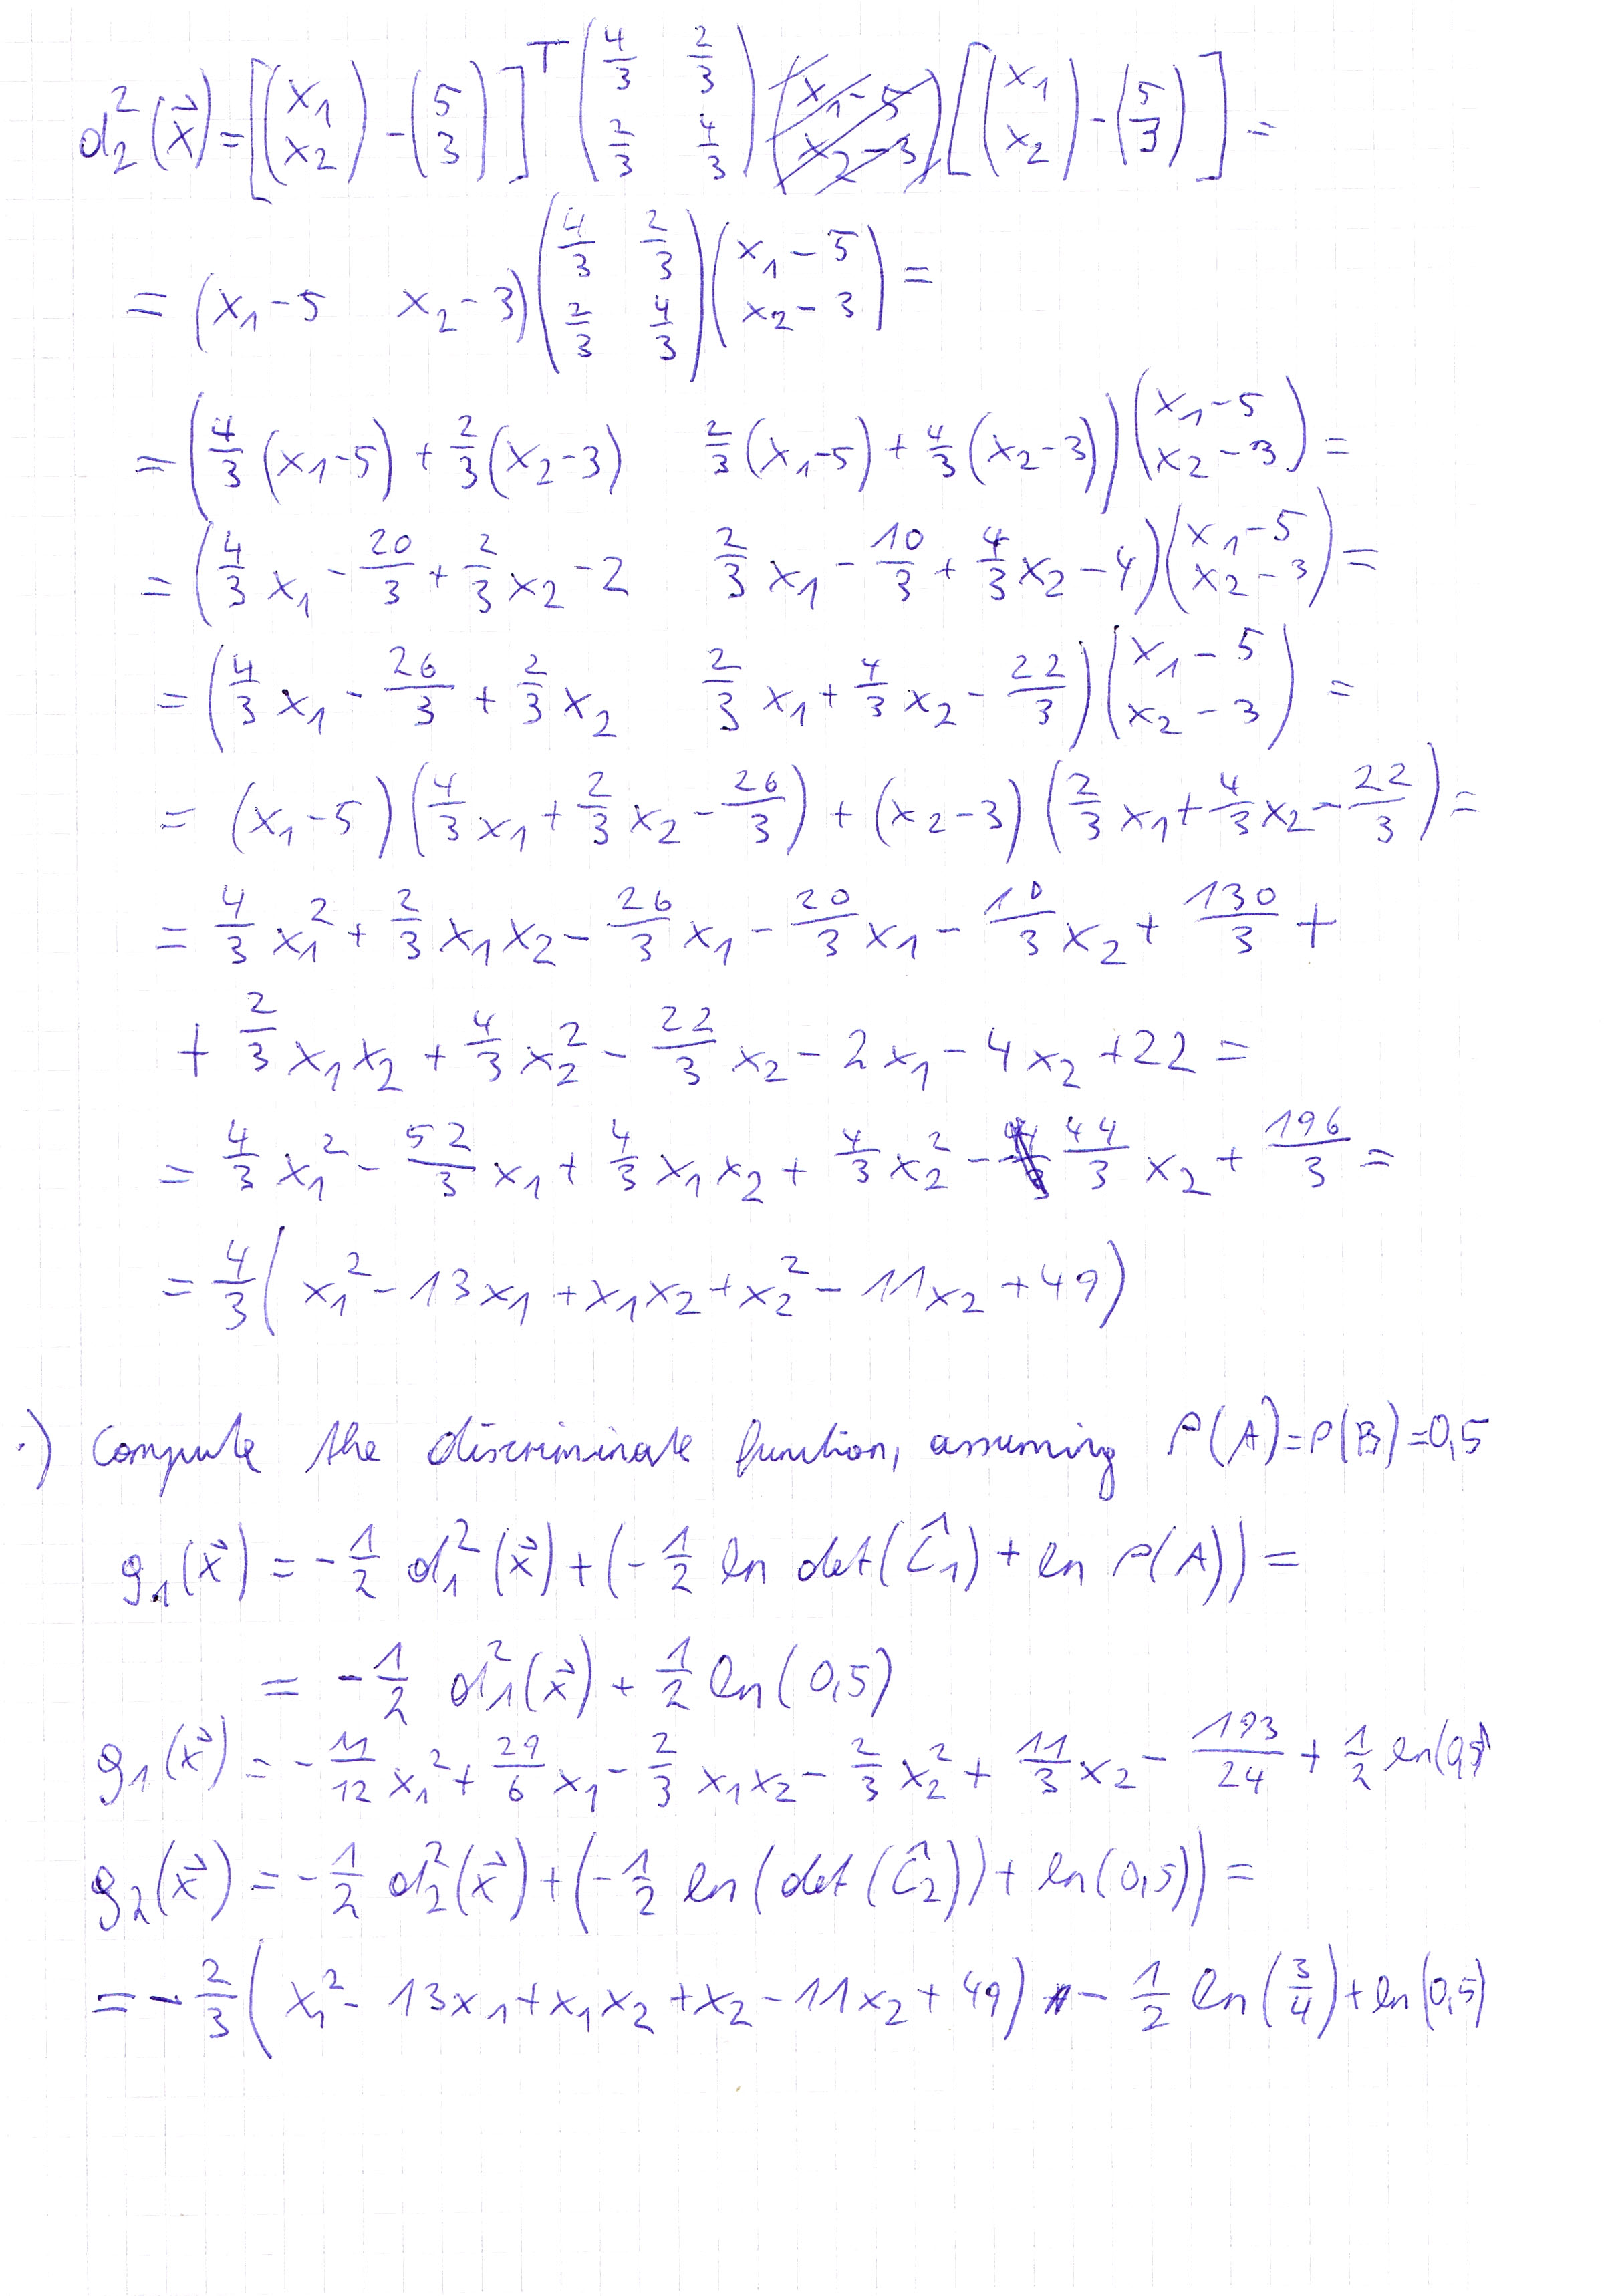 d₂²(x⃗) = [(x₁ x₂) − (5 3)]ᵀ (4/3 2/3 2/3 4/3) [(x₁ x₂) − (5 3)] =
= (x₁−5 x₂−3) (4/3 2/3 2/3 4/3) (x₁−5 x₂−3) =
= (4/3 (x₁−5) + 2/3 (x₂−3) 2/3 (x₁−5) + 4/3 (x₂−3)) (x₁−5 x₂−3) =
= (4/3 x₁ − 20/3 + 2/3 x₂ − 2 2/3 x₁ − 10/3 + 4/3 x₂ − 4) (x₁−5 x₂−3) =
= (4/3 x₁ − 26/3 + 2/3 x₂ 2/3 x₁ + 4/3 x₂ − 22/3) (x₁−5 x₂−3) =
= (x₁−5) (4/3 x₁ + 2/3 x₂ − 26/3) + (x₂−3) (2/3 x₁ + 4/3 x₂ − 22/3) =
= 4/3 x₁² + 2/3 x₁x₂ − 26/3 x₁ − 20/3 x₁ − 10/3 x₂ + 130/3 +
+ 2/3 x₁x₂ + 4/3 x₂² − 22/3 x₂ − 2x₁ − 4x₂ + 22 =
= 4/3 x₁² − 52/3 x₁ + 4/3 x₁x₂ + 4/3 x₂² − 44/3 x₂ + 196/3 =
= 4/3 (x₁² − 13x₁ + x₁x₂ + x₂² − 11x₂ + 49)
·) Compute the discriminate function, assuming P(A)=P(B)=0,5
g₁(x⃗) = −1/2 d₁²(x⃗) + (−1/2 ln det(Ĉ₁) + ln P(A)) =
= −1/2 d₁²(x⃗) + 1/2 ln(0,5)
g₁(x⃗) = −11/12 x₁² + 29/6 x₁ − 2/3 x₁x₂ − 2/3 x₂² + 11/3 x₂ − 193/24 + 1/2 ln(0,5)
g₂(x⃗) = −1/2 d₂²(x⃗) + (−1/2 ln(det(Ĉ₂)) + ln(0,5)) =
= −2/3 (x₁² − 13x₁ + x₁x₂ + x₂ − 11x₂ + 49) − 1/2 ln(3/4) + ln(0,5)